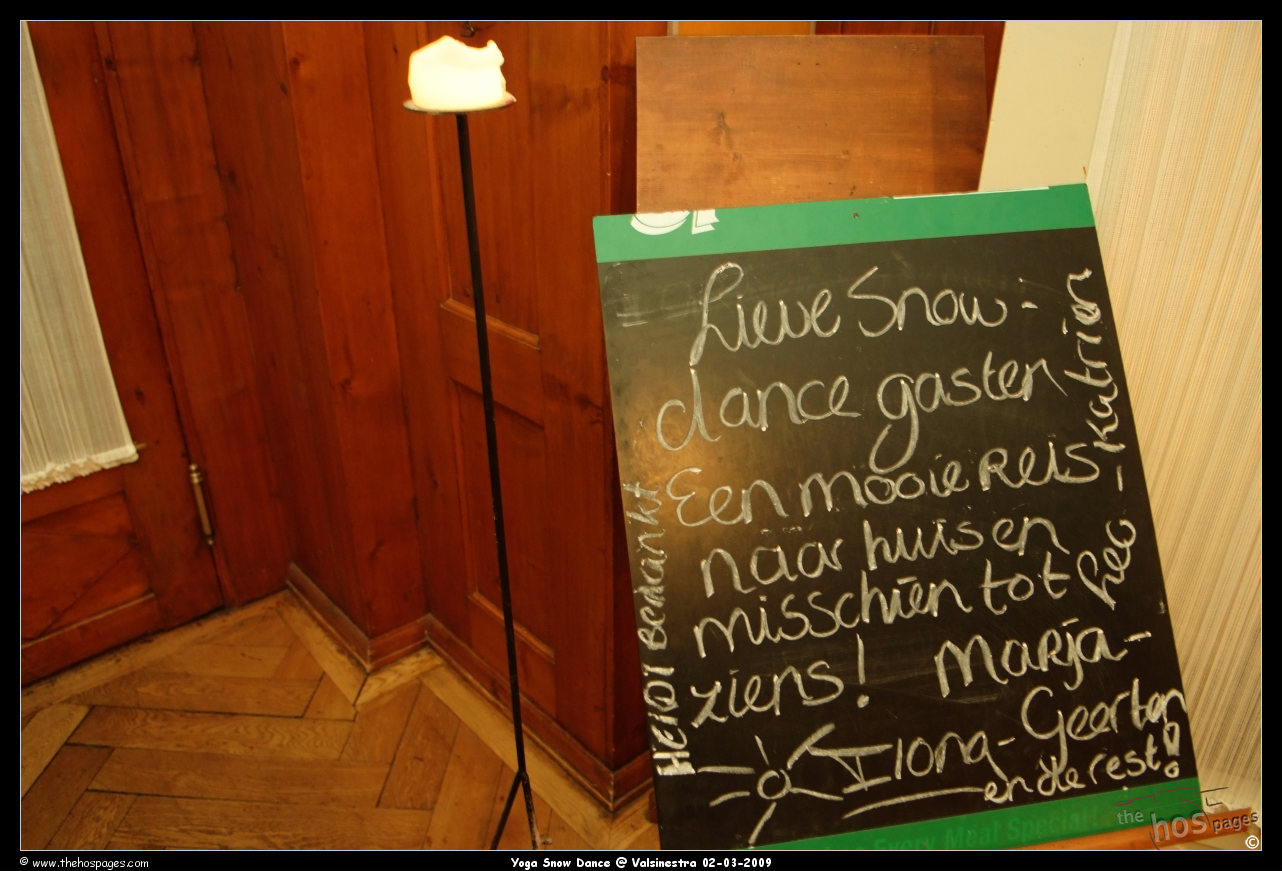 Lieve Snow-
dance gasten
Een mooie Reis
naar huis en
misschien tot
ziens! Marja-
Ilona- Geerten
en de rest!
Heo - Katrien
HEIDI BEDANKT
Every Meal Special
the hos pages
© www.thehospages.com
Yoga Snow Dance @ Valsinestra 02-03-2009
©